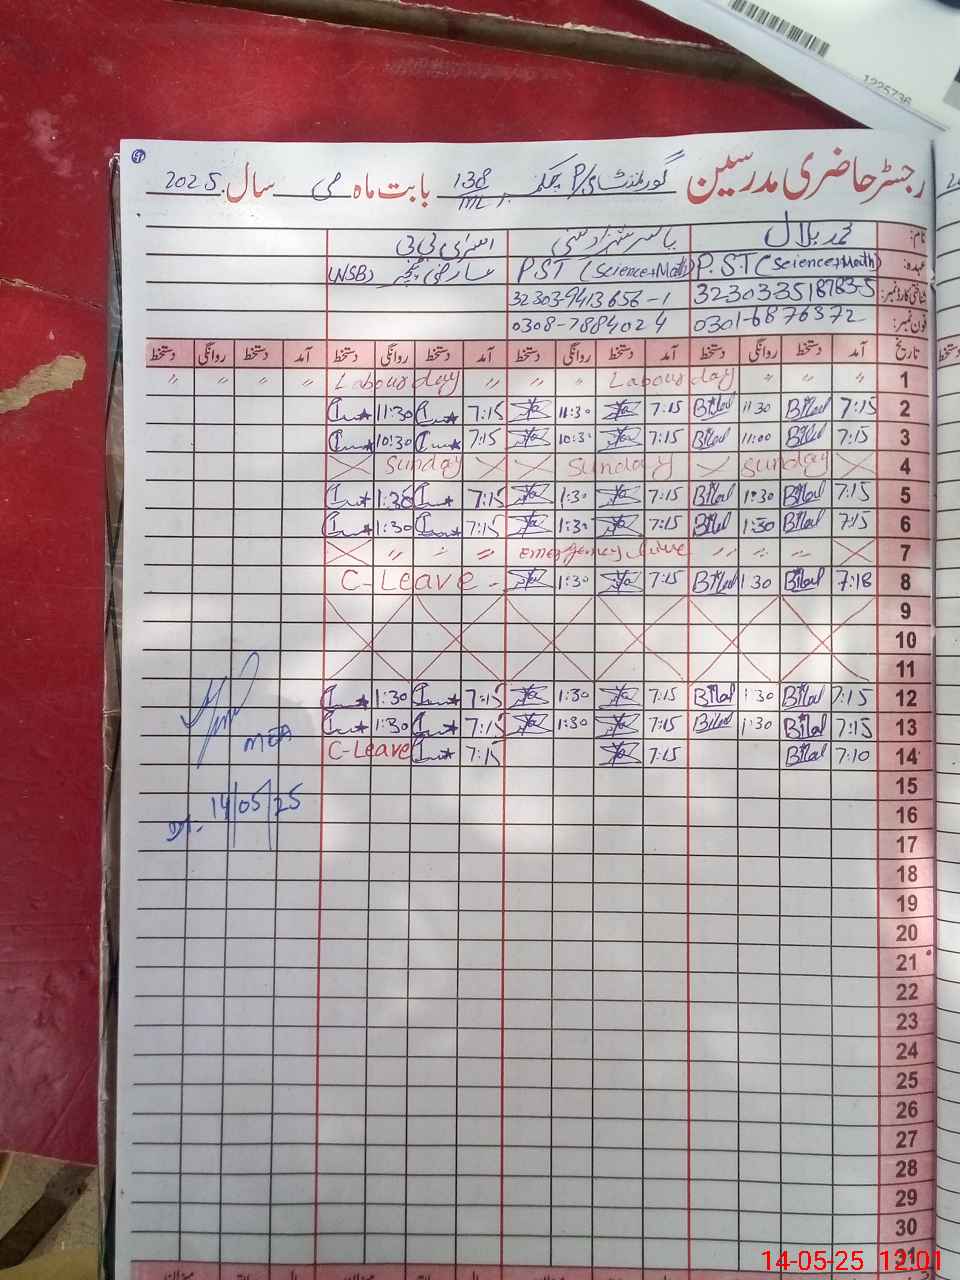 1225736
رجسٹر حاضری مدرسین گورنمنٹ P/S 138/ML بابت ماہ مئی سال 2025
نام: محمد بلال یاسر شہزاد
عہدہ: P.S.T (Science+Math) P.ST (Science+Math) (NSB)
شناختی کارڈ نمبر: 32303-3518783-5 32303-9413656-1
فون نمبر: 0301-6876372 0308-7884024
تاریخ آمد دستخط روانگی دستخط آمد دستخط روانگی دستخط آمد دستخط روانگی دستخط آمد دستخط روانگی دستخط
1 " " " Labour day " " " Labour day " " " "
2 7:15 Bilal 11:30 Bilal 7:15 11:30 7:15 11:30
3 7:15 Bilal 11:00 Bilal 7:15 10:30 7:15 10:30
4 Sunday Sunday Sunday
5 7:15 Bilal 1:30 Bilal 7:15 1:30 7:15 1:30
6 7:15 Bilal 1:30 Bilal 7:15 1:30 7:15 1:30
7 " " " emergency " " "
8 7:18 Bilal 1:30 Bilal 7:15 1:30 C-Leave -
9
10
11
12 7:15 Bilal 1:30 Bilal 7:15 1:30 7:15 1:30
13 7:15 Bilal 1:30 Bilal 7:15 1:30 7:15 1:30
14 7:10 Bilal 7:15 7:15 C-Leave
MEA
15
14/05/25
16
17
18
19
20
21
22
23
24
25
26
27
28
29
30
31
14-05-25 12:01